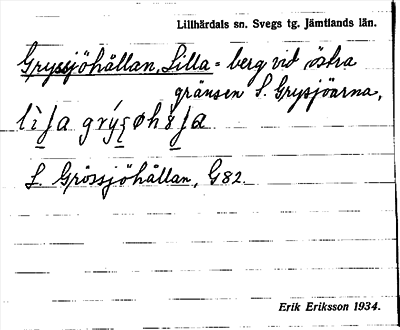 Lillhärdals sn. Svegs tg. Jämtlands län.
Gryssjöhållan, Lilla = berg vid östra
gränsen L. Grysjöarna,
L. Grössjöhållan, G82.
Erik Eriksson 1934.